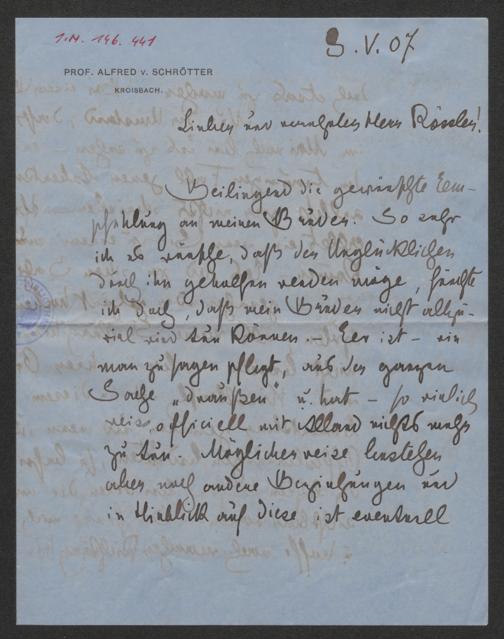 I.N. 146.441
3.V.07
PROF. ALFRED v. SCHRÖTTER
KROISBACH.
Lieber und verehrter Herr Rössler!
Beiliegend die gewünschte Em-
pfehlung an meinen Bruder. So sehr
ich es wünsche, daß den Unglücklichen
durch ihn geholfen werden möge, fürchte
ich doch, daß mein Bruder nicht allzu-
viel wird tun können. – Er ist – wie
man zu sagen pflegt, aus der ganzen
Sache „draußen" u. hat – so ziemlich
officiell mit Alland nichts mehr
zu tun. Möglicherweise bestehen
aber noch andere Beziehungen und
in Hinblick auf diese ist eventuell